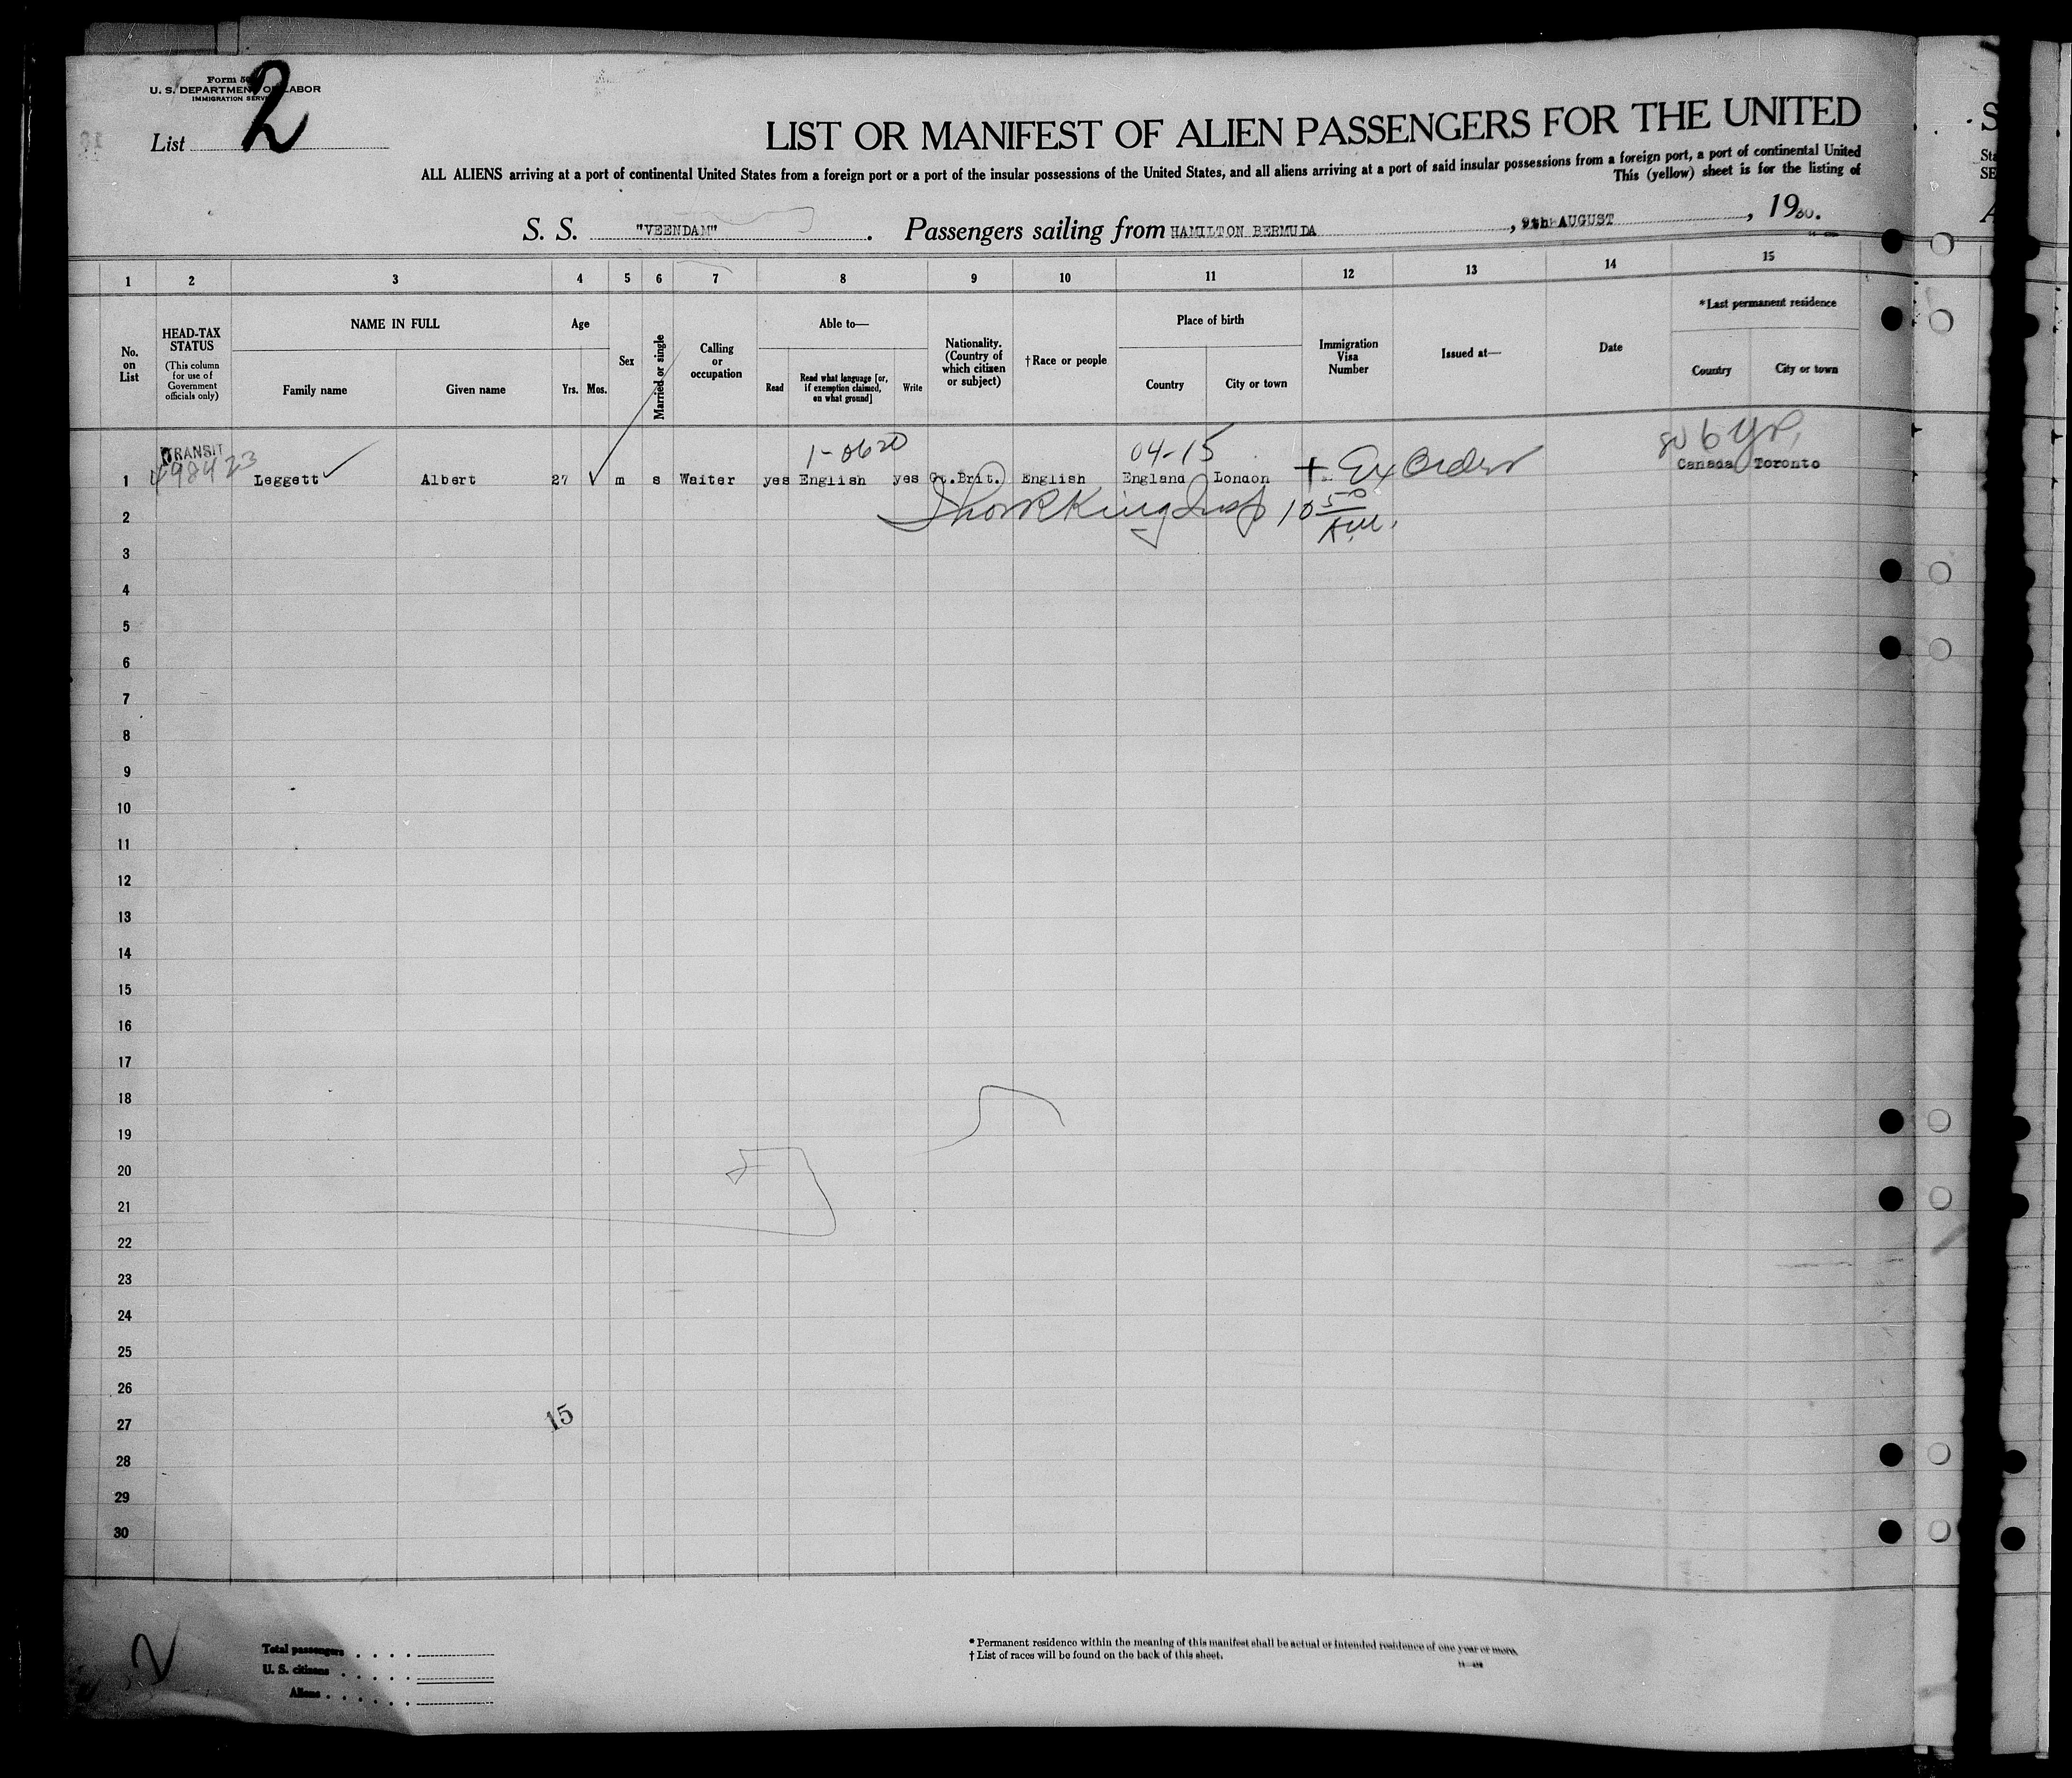 Form 50
U. S. DEPARTMENT OF LABOR
IMMIGRATION SERV
List 2
LIST OR MANIFEST OF ALIEN PASSENGERS FOR THE UNITED
ALL ALIENS arriving at a port of continental United States from a foreign port or a port of the insular possessions of the United States, and all aliens arriving at a port of said insular possessions from a foreign port, a port of continental United
This (yellow) sheet is for the listing of
S. S. "VEENDAM". Passengers sailing from HAMILTON BERMUDA, 9th AUGUST, 1930.
1 2 3 4 5 6 7 8 9 10 11 12 13 14 15
No. on List
HEAD-TAX STATUS
(This column for use of Government officials only)
NAME IN FULL
Family name Given name
Age
Yrs. Mos.
Sex
Married or single
Calling or occupation
Able to—
Read Read what language [or, if exemption claimed, on what ground] Write
Nationality. (Country of which citizen or subject)
†Race or people
Place of birth
Country City or town
Immigration Visa Number
Issued at—
Date
*Last permanent residence
Country City or town
TRANSIT 1-0620 04-15 6 yr.
498423
1 Leggett Albert 27 m s Waiter yes English yes Gt.Brit. English England London Ex Order Canada Toronto
2 10 50 AM.
3
4
5
6
7
8
9
10
11
12
13
14
15
16
17
18
19
20
21
22
23
24
25
26
27
15
28
29
30
2
Total passengers
U. S. citizens
Aliens
* Permanent residence within the meaning of this manifest shall be actual or intended residence of one year or more.
† List of races will be found on the back of this sheet.